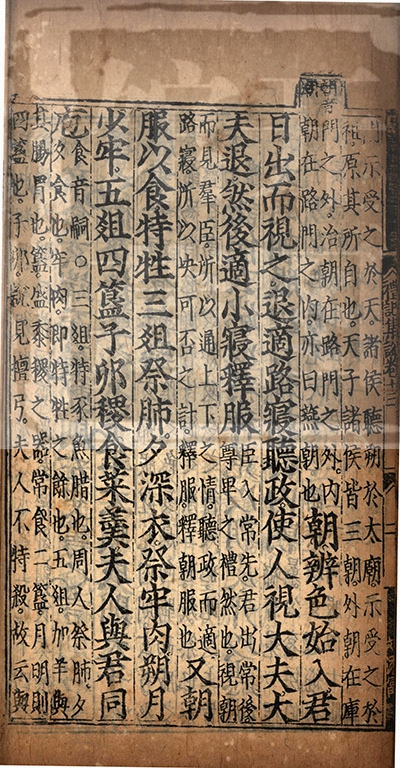 月示受之於天諸侯聽朔於太廟示受之於
祖原其所自也天子諸侯皆三朝外朝在庫
門之外治朝在路門之外內
朝在路門之內亦曰燕朝也
朝辨色始入君
日出而視之退適路寢聽政使人視大夫大
夫退然後適小寢釋服
臣入常先君出常後
尊卑之禮然也視朝
而見羣臣所以通上下之情聽政而適
路寢所以決可否之計釋服釋朝服也
又朝
服以食特牲三俎祭肺夕深衣祭牢肉朔月
少牢五俎四簋子卯稷食菜羹夫人與君同
庖
食音嗣○三俎特豕魚腊也周人祭肺夕
夕食也牢肉即特牲之餘也五俎加羊與
其腸胃也簋盛黍稷之器常食二簋月朔則
四簋也子卯說見檀弓夫人不特殺故云與
禮記集說卷十三